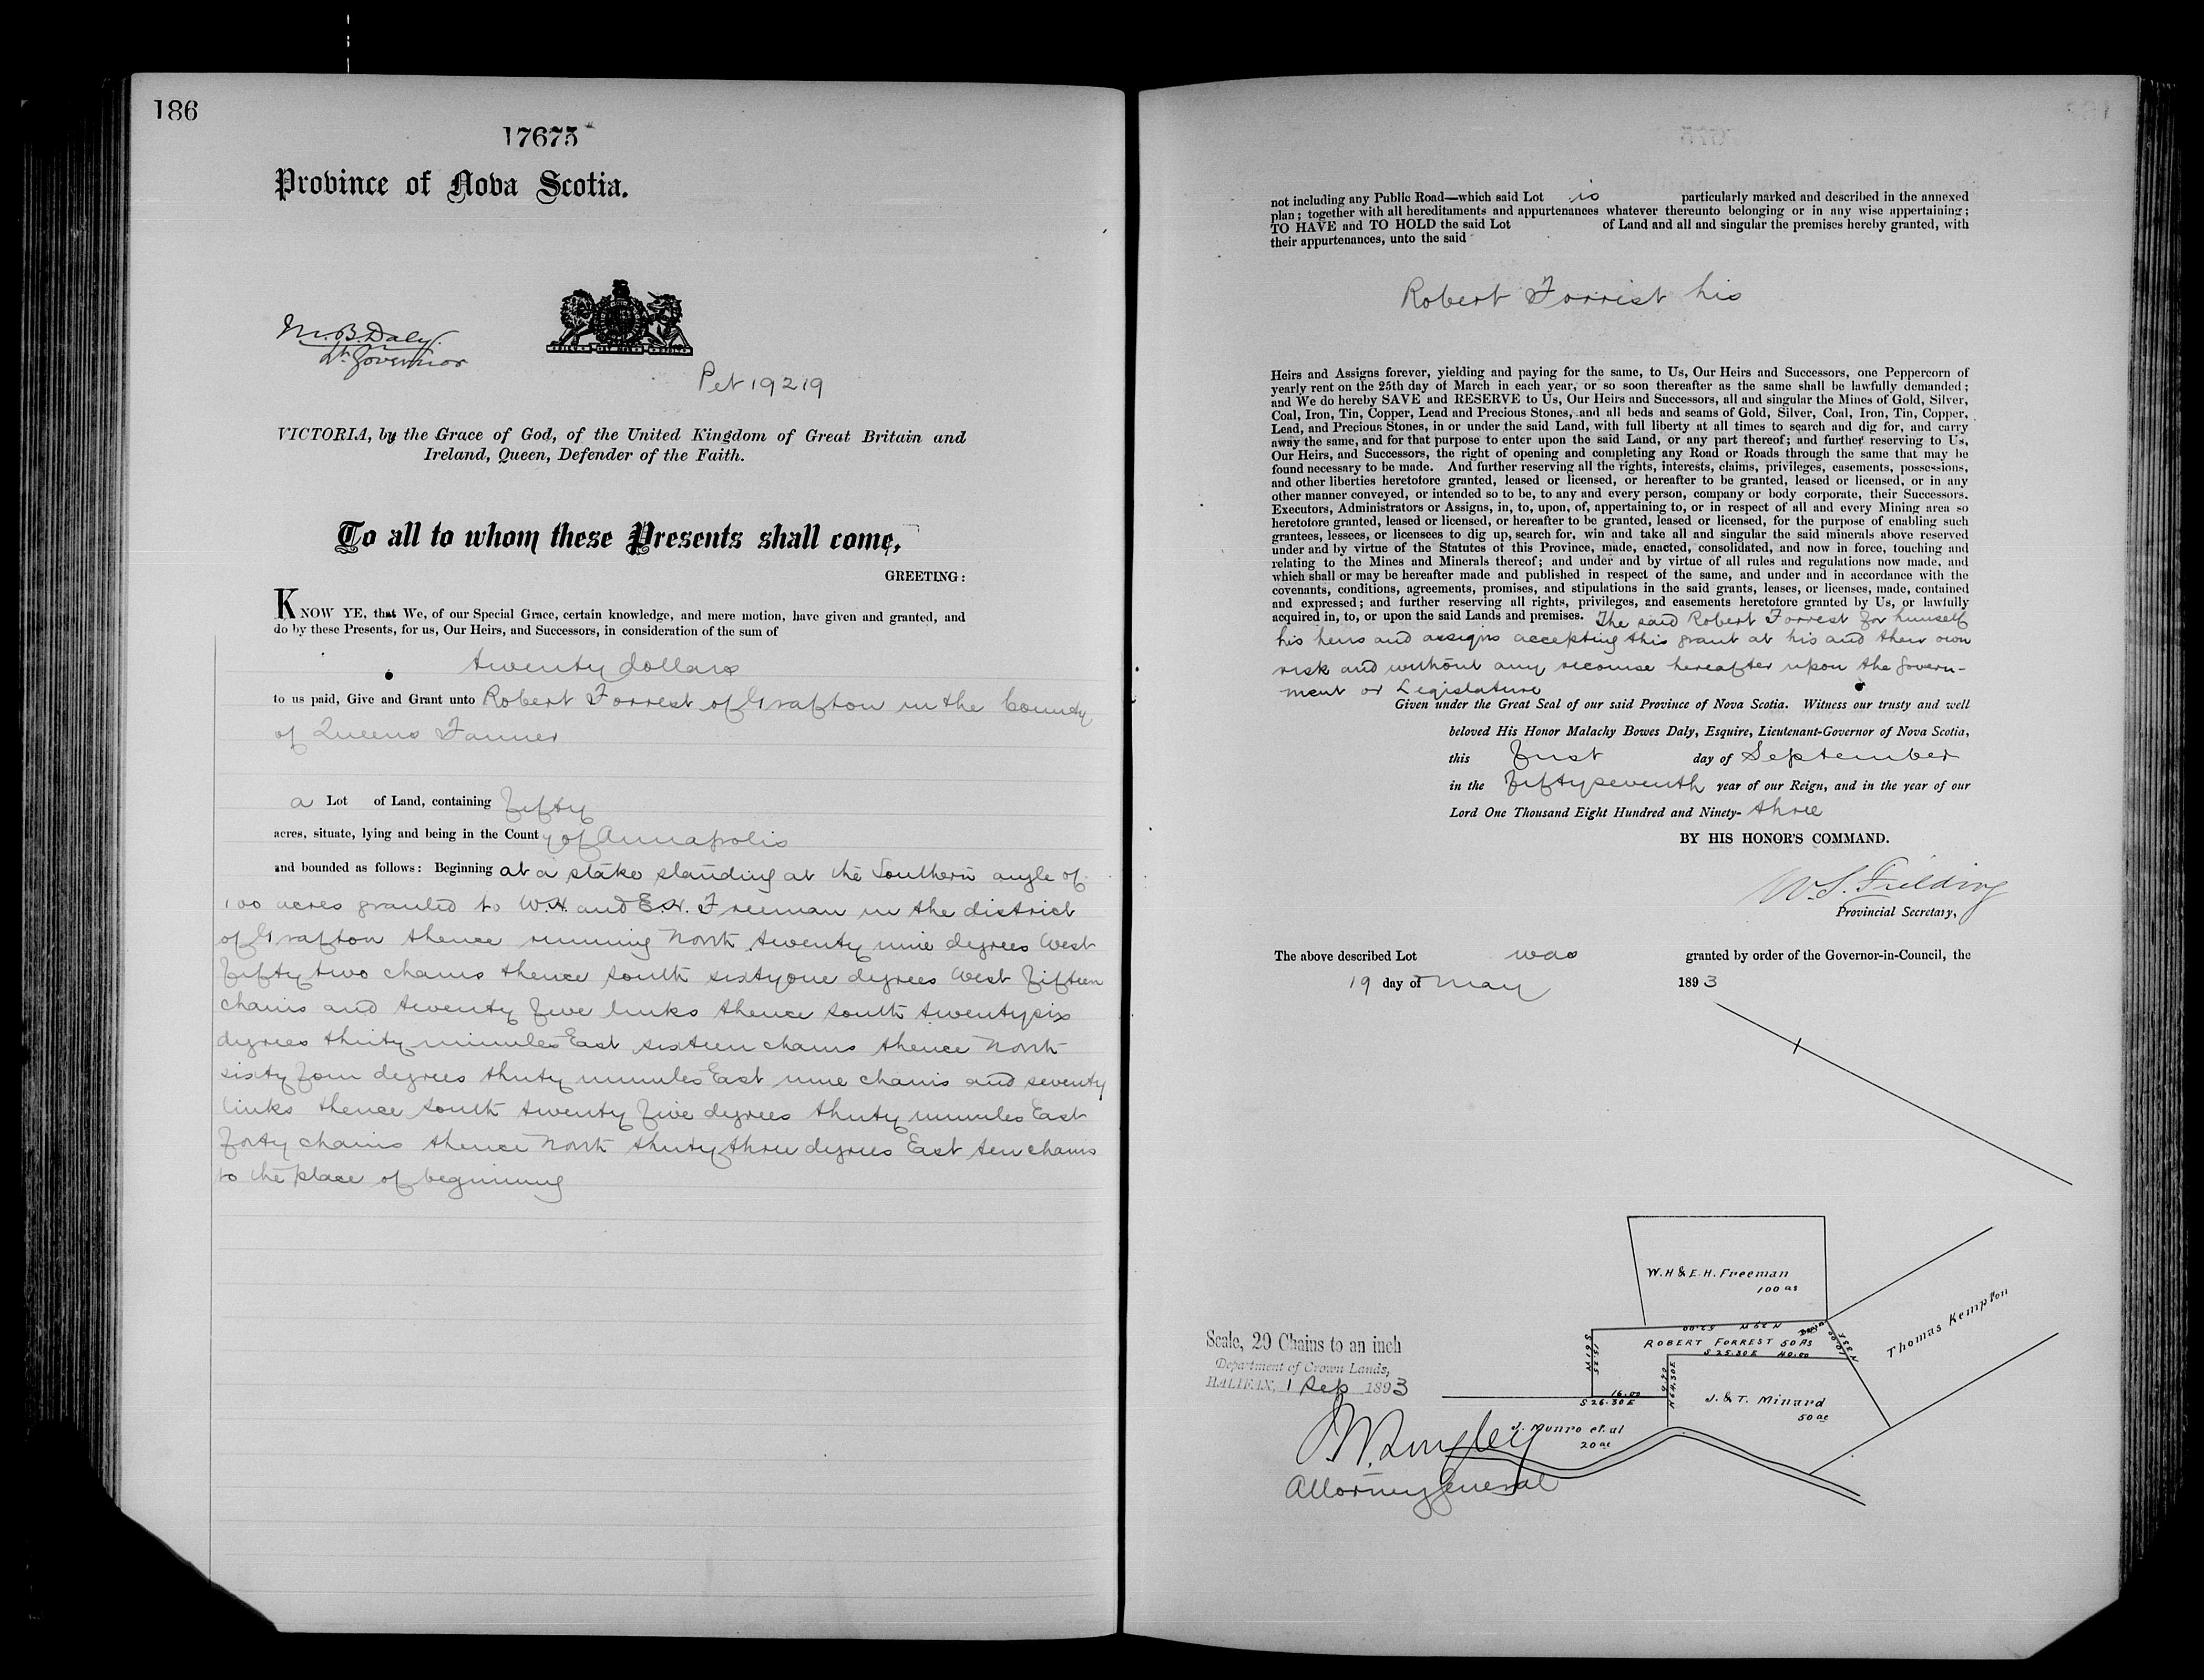 186
17675
Province of Nova Scotia.
M. B. Daly.
Lt. Governor
Pet 19219
VICTORIA, by the Grace of God, of the United Kingdom of Great Britain and
Ireland, Queen, Defender of the Faith.
To all to whom these Presents shall come,
GREETING:
KNOW YE, that We, of our Special Grace, certain knowledge, and mere motion, have given and granted, and
do by these Presents, for us, Our Heirs, and Successors, in consideration of the sum of
twenty dollars
to us paid, Give and Grant unto Robert Forrest of Grafton in the County
of Queens Farmer
a Lot of Land, containing fifty
acres, situate, lying and being in the County of Annapolis
and bounded as follows: Beginning at a stake standing at the Southern angle of
100 acres granted to W.H. and E.H. Freeman in the district
of Grafton thence running North twenty nine degrees West
fifty two chains thence south sixty one degrees West fifteen
chains and twenty five links thence south twenty six
degrees thirty minutes East sixteen chains thence North
sixty four degrees thirty minutes East nine chains and seventy
links thence south twenty five degrees thirty minutes East
forty chains thence North thirty three degrees East ten chains
to the place of beginning
not including any Public Road—which said Lot is particularly marked and described in the annexed
plan; together with all hereditaments and appurtenances whatever thereunto belonging or in any wise appertaining;
TO HAVE and TO HOLD the said Lot of Land and all and singular the premises hereby granted, with
their appurtenances, unto the said
Robert Forrist his
Heirs and Assigns forever, yielding and paying for the same, to Us, Our Heirs and Successors, one Peppercorn of
yearly rent on the 25th day of March in each year, or so soon thereafter as the same shall be lawfully demanded;
and We do hereby SAVE and RESERVE to Us, Our Heirs and Successors, all and singular the Mines of Gold, Silver,
Coal, Iron, Tin, Copper, Lead and Precious Stones, and all beds and seams of Gold, Silver, Coal, Iron, Tin, Copper,
Lead, and Precious Stones, in or under the said Land, with full liberty at all times to search and dig for, and carry
away the same, and for that purpose to enter upon the said Land, or any part thereof; and further reserving to Us,
Our Heirs, and Successors, the right of opening and completing any Road or Roads through the same that may be
found necessary to be made. And further reserving all the rights, interests, claims, privileges, easements, possessions,
and other liberties heretofore granted, leased or licensed, or hereafter to be granted, leased or licensed, or in any
other manner conveyed, or intended so to be, to any and every person, company or body corporate, their Successors.
Executors, Administrators or Assigns, in, to, upon, of, appertaining to, or in respect of all and every Mining area so
heretofore granted, leased or licensed, or hereafter to be granted, leased or licensed, for the purpose of enabling such
grantees, lessees, or licensees to dig up, search for, win and take all and singular the said minerals above reserved
under and by virtue of the Statutes of this Province, made, enacted, consolidated, and now in force, touching and
relating to the Mines and Minerals thereof; and under and by virtue of all rules and regulations now made, and
which shall or may be hereafter made and published in respect of the same, and under and in accordance with the
covenants, conditions, agreements, promises, and stipulations in the said grants, leases, or licenses, made, contained
and expressed; and further reserving all rights, privileges, and easements heretofore granted by Us, or lawfully
acquired in, to, or upon the said Lands and premises. The said Robert Forrest for himself
his heirs and assigns accepting this grant at his and their own
risk and without any recourse hereafter upon the Govern-
ment or Legislature
Given under the Great Seal of our said Province of Nova Scotia. Witness our trusty and well
beloved His Honor Malachy Bowes Daly, Esquire, Lieutenant-Governor of Nova Scotia,
this first day of September
in the fifty seventh year of our Reign, and in the year of our
Lord One Thousand Eight Hundred and Ninety-three
BY HIS HONOR'S COMMAND.
W. S. Fielding
Provincial Secretary,
The above described Lot was granted by order of the Governor-in-Council, the
19 day of May 1893
W. H & E. H. Freeman
100 as
Thomas Kempton
N 29 W 52.00
ROBERT FORREST 50 As
S 25.30 E 40.00
S 61 W
15.25
N 33 E
10.00
N 64.30 E
9.70
16.00
S 26.30 E
J. & T. Minard
50 ac
J. Munro et al
20 ac
Scale, 20 Chains to an inch
Department of Crown Lands,
HALIFAX, 1 Sep 1893
J W Longley
Attorney General